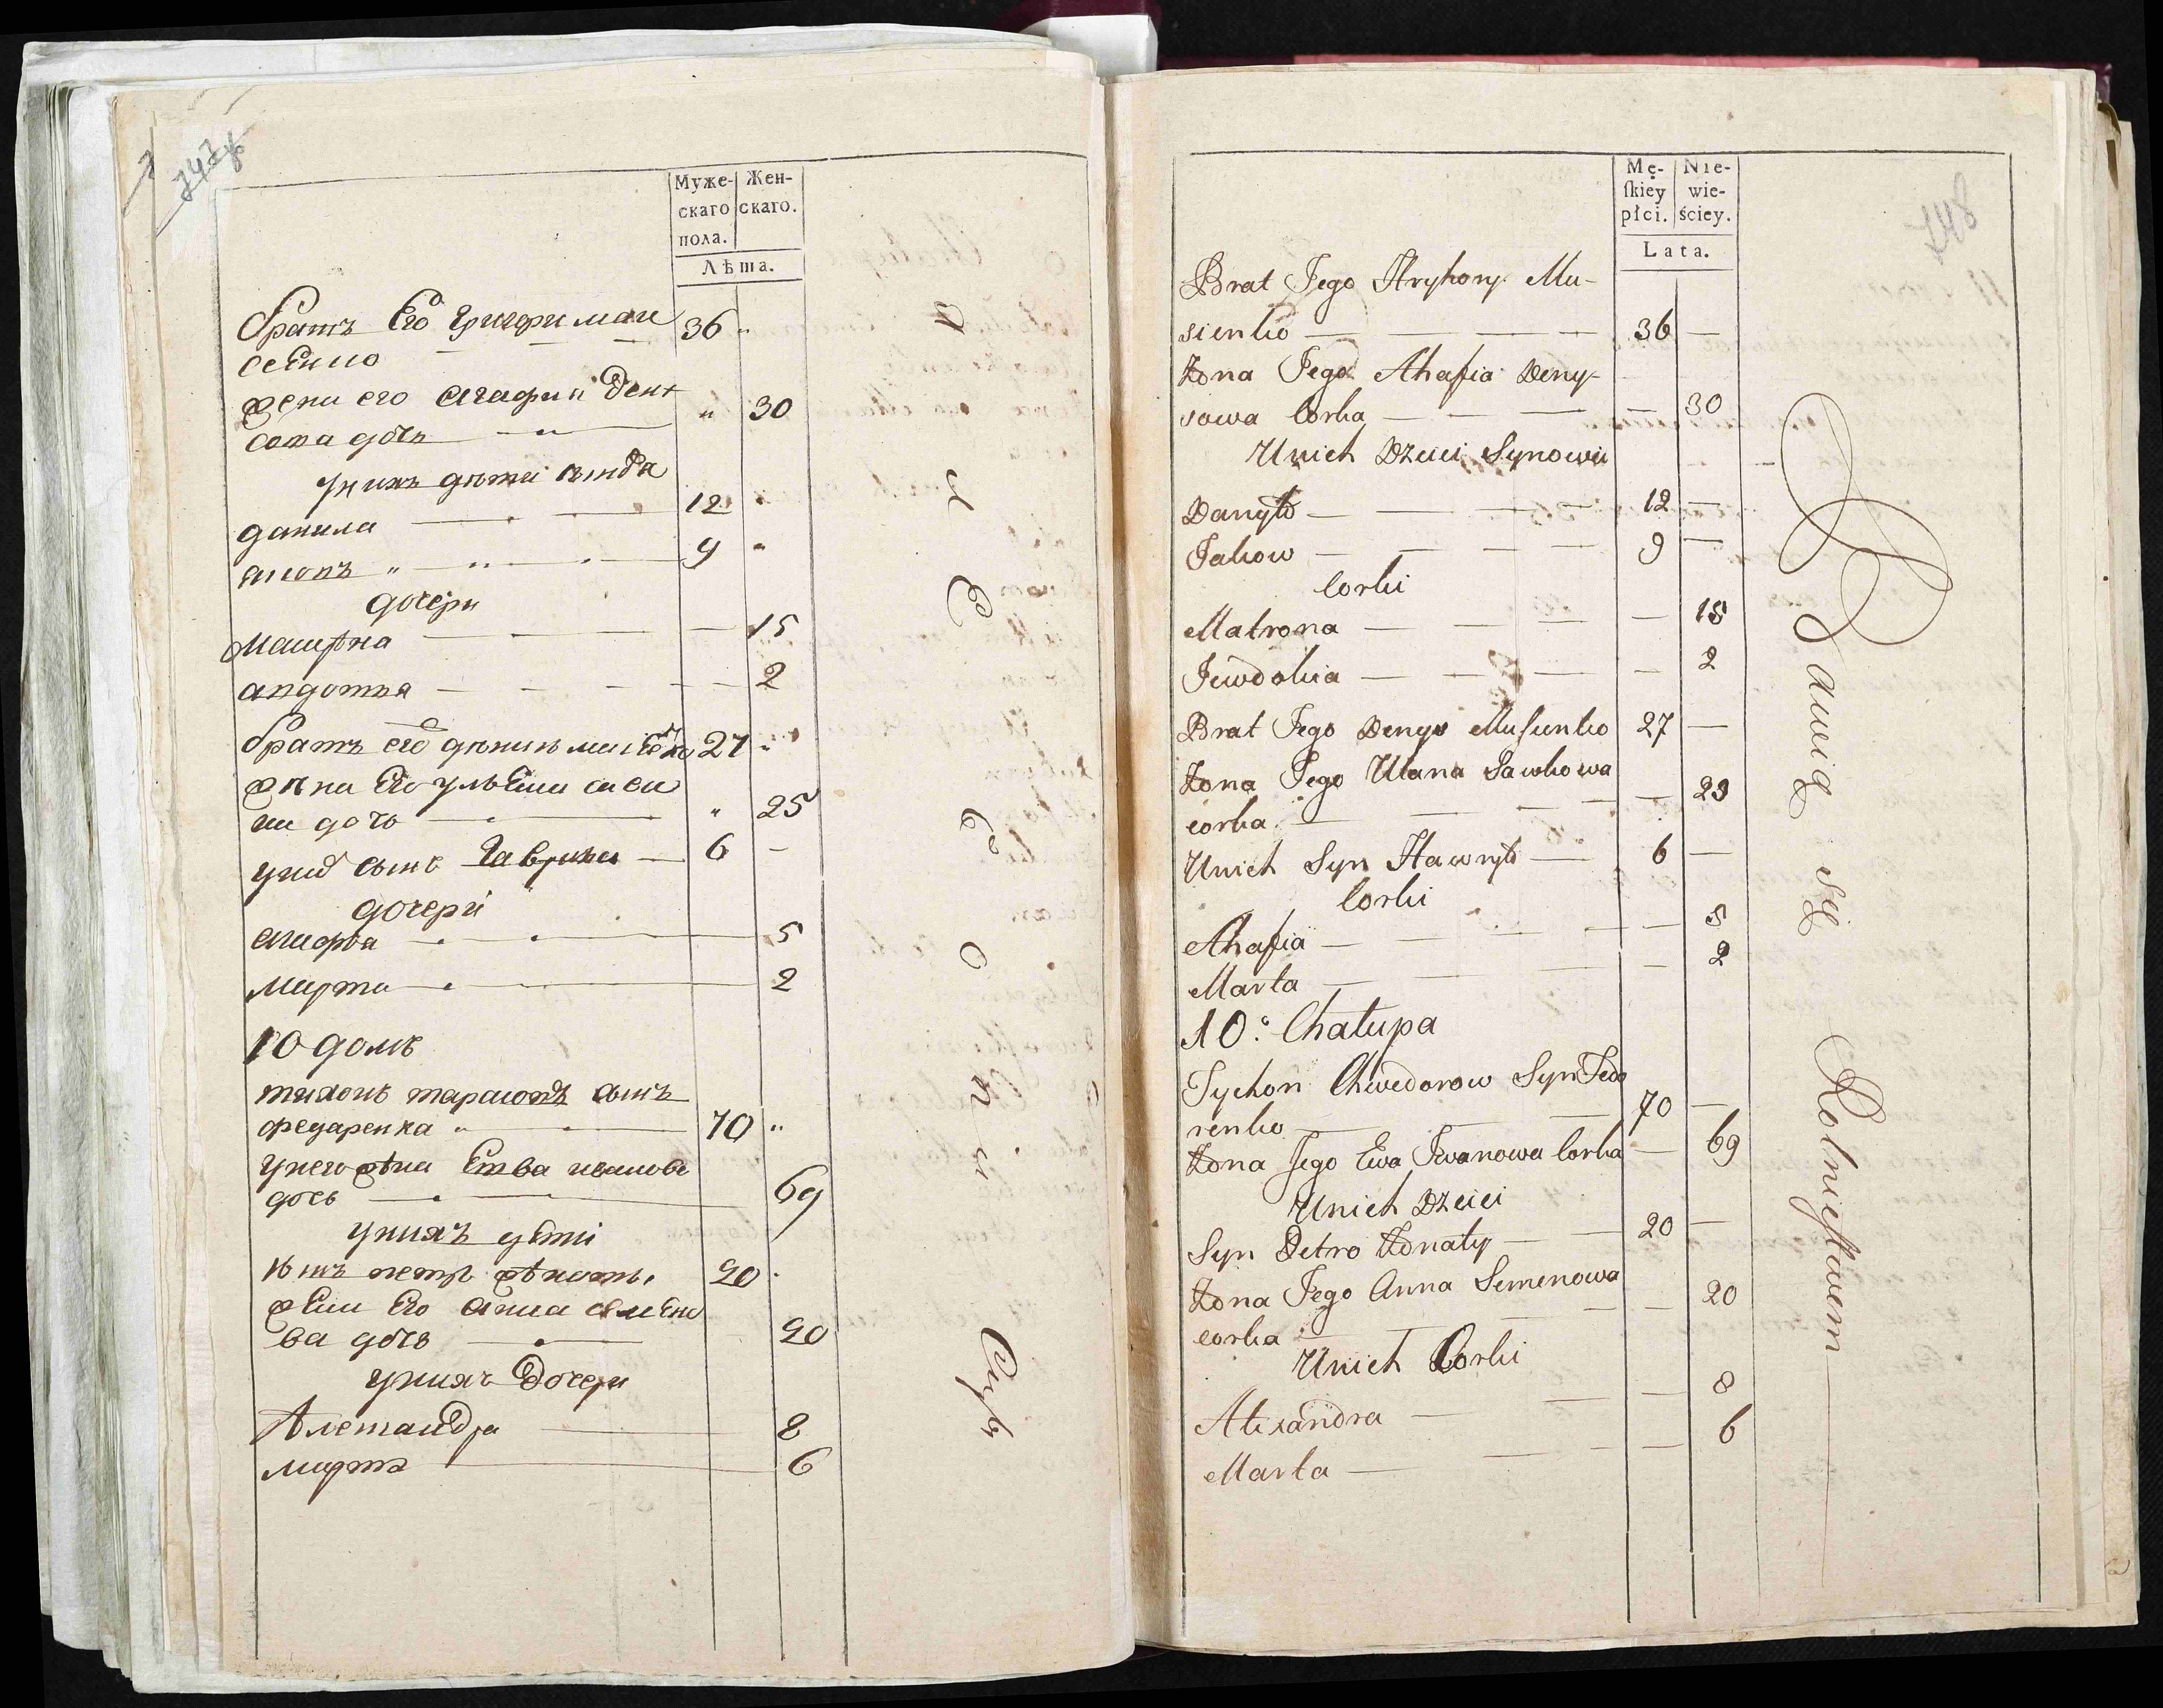 Муже-
скаго
пола.
Жен-
скаго.
Лѣта.
братъ Его григори маи
сеенко 36
жена его агафия дени
сова дочь 30
у нихъ дѣти
данила 12
яковъ 9
дочери
матрона 15
авдотья 2
братъ его денисъ 27
дочь 25
сынъ гаврила 6
дочери
агафья 5
марта 2
10 домъ
тихонъ сынъ
федаренка 70
у него жена Евва иванова
дочь 69
у нихъ дети
сынъ петръ женаты 20
жена Его анна семено
ва дочь 20
у нихъ дочери
Александра 8
марта 6
748
Mę-
ſkiey
płci.
Nie-
wie-
ściey.
Lata.
Brat Jego Hryhory Mu-
sienko — 36 —
Żona Jego Ahafia Deny-
sowa Corka — — 30
Unich Dzieci Synowie
Danyło — 12 —
Jakow — 9 —
Corki
Matrona — — 15
Jewdokia — — 2
Brat Jego Denys Musienko 27 —
Żona Jego Ulana Sawkowa
corka — — 23
Unich Syn Hawryło — 6 —
Corki
Ahafia — — 5
Marta — — 2
10. Chałupa
Tychon Chwedorow Syn Fedo
renko — 70 —
Żona Jego Ewa Iwanowa Corka — 69
Unich Dzieci
Syn Petro Żonaty — 20 —
Żona Jego Anna Semenowa
corka — — 20
Unich Corki
Alexandra — — 8
Marta — — 6
Bawią się Rolnictwem